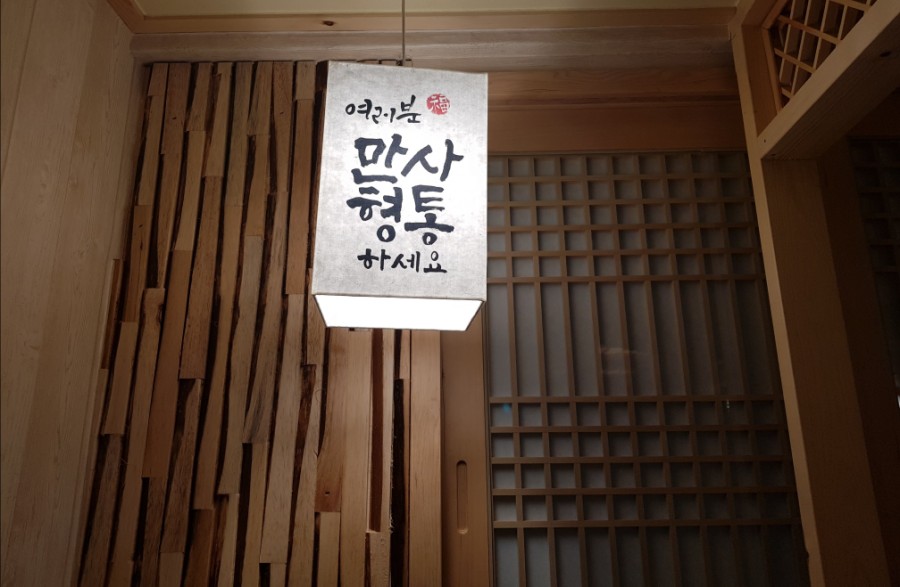 여러분 福
만사
형통
하세요